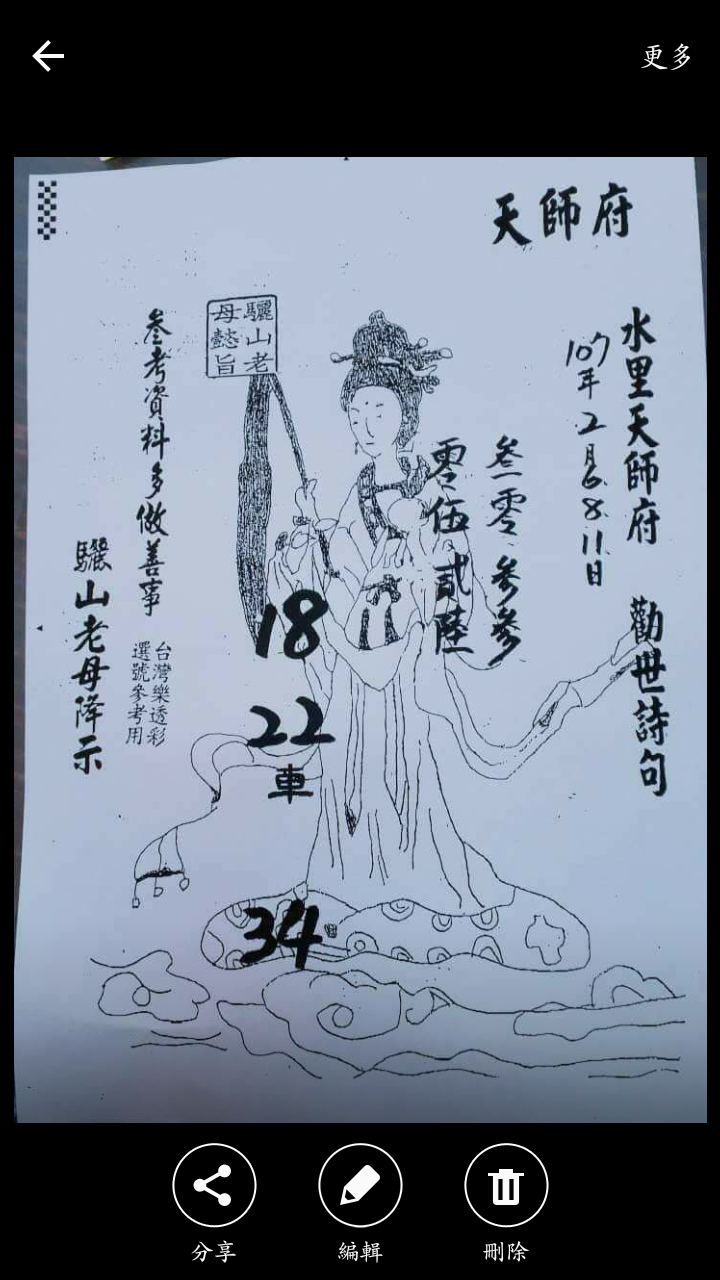 更多
天師府
水里天師府 勸世詩句
107年2月6.8.11.日
叁零叁叁
零伍貳陸
驪山老
母懿旨
18
22
車
34
參考資料多做善事
台灣樂透彩
選號參考用
驪山老母降示
分享
編輯
刪除